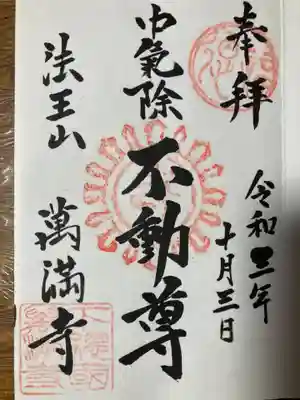 奉拝
令和三年
十月三日
中氣除
不動尊
法王山
萬満寺